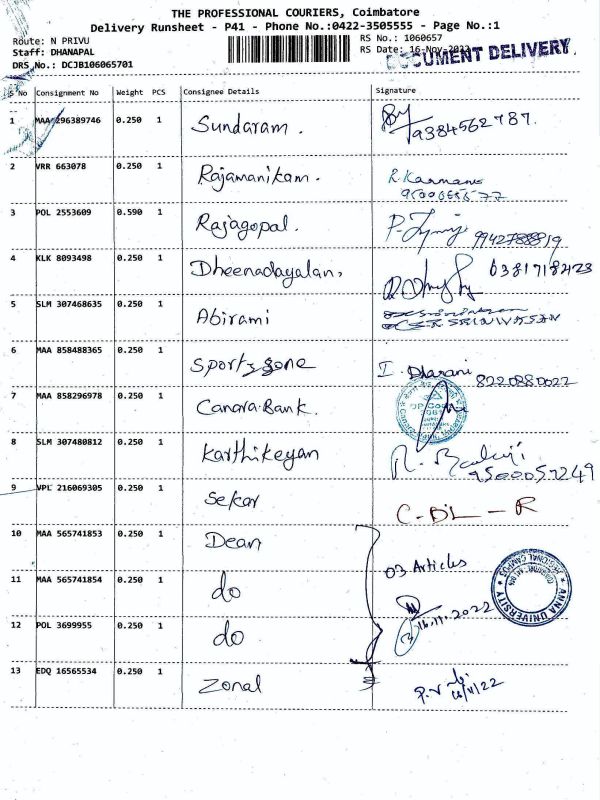 THE PROFESSIONAL COURIERS, Coimbatore
Delivery Runsheet - P41 - Phone No.:0422-3505555 - Page No.:1
Route: N PRIVU
RS No.: 1060657
Staff: DHANAPAL
RS Date: 16-Nov-2022
DOCUMENT DELIVERY.
DRS No.: DCJB106065701
S No Consignment No Weight PCS Consignee Details Signature
1 MAA 296389746 0.250 1 Sundaram. 9384562787.
2 VRR 663078 0.250 1 Rajamanikam.
3 POL 2553609 0.590 1 Rajagopal.
4 KLK 8093498 0.250 1 Dheenadayalan,
5 SLM 307468635 0.250 1 Abirami
6 MAA 858488365 0.250 1 Sports zone I. Dharani 8220880022
7 MAA 858296978 0.250 1 Canara Bank.
8 SLM 307480812 0.250 1 Karthikeyan R. Balaji 9500057249
9 VPL 216069305 0.250 1 Sekar C-BL-R
10 MAA 565741853 0.250 1 Dean
11 MAA 565741854 0.250 1 do 03 Articles
16.11.2022
ANNA UNIVERSITY
REGIONAL CAMPUS
12 POL 3699955 0.250 1 do
13 EDQ 16565534 0.250 1 Zonal 16/11/22